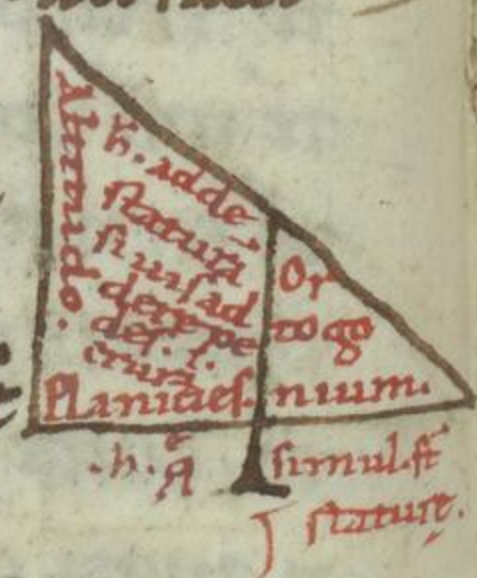 Altitudo.
h. adde
staturā
si uis ad
dere pe
des. l.
crura
Or
togo
nium.
Planicies.
.h.
simul. st̄
staturę.